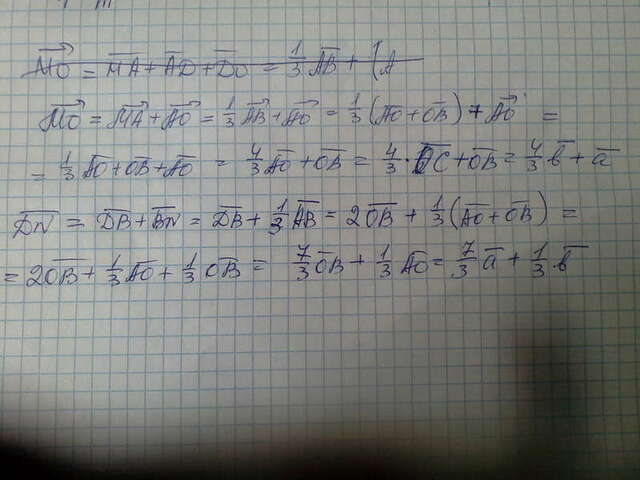 MO = MA + AD + DO = 1/3 AB + (A
MO = MA + AO = 1/3 AB + AO = 1/3 (AO + OB) + AO =
= 1/3 AO + OB + AO = 4/3 AO + OB = 4/3 · OC + OB = 4/3 b + a
DN = DB + BN = DB + 1/3 AB = 2OB + 1/3 (AO + OB) =
= 2OB + 1/3 AO + 1/3 OB = 7/3 OB + 1/3 AO = 7/3 a + 1/3 b